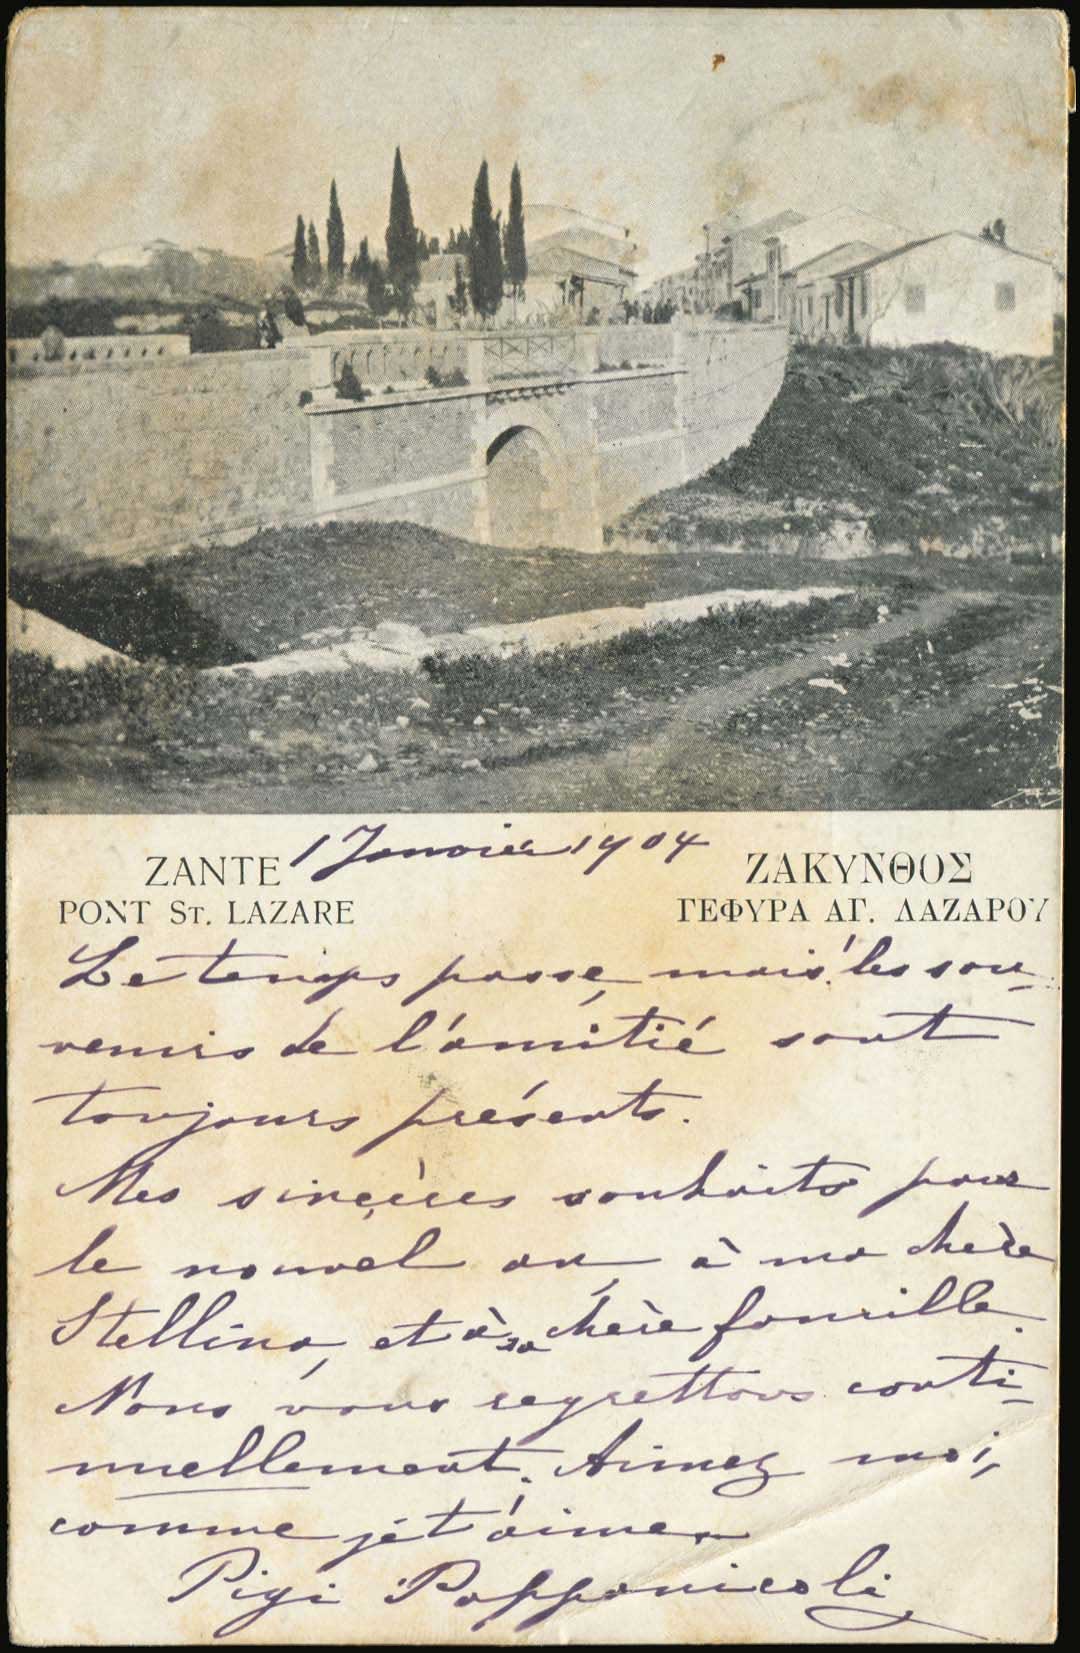 1 Janvier 1904
ZANTE
PONT ST. LAZARE
ΖΑΚΥΝΘΟΣ
ΓΕΦΥΡΑ ΑΓ. ΛΑΖΑΡΟΥ
Le temps passe, mais les sou-
venirs de l'amitié sont
toujours présents.
Mes sincères souhaits pour
le nouvel an, à ma chère
Stellina, et à sa chère famille.
Nous vous regrettons conti-
nuellement. Aimez moi,
comme je t'aime.
Pigi Papponicoli